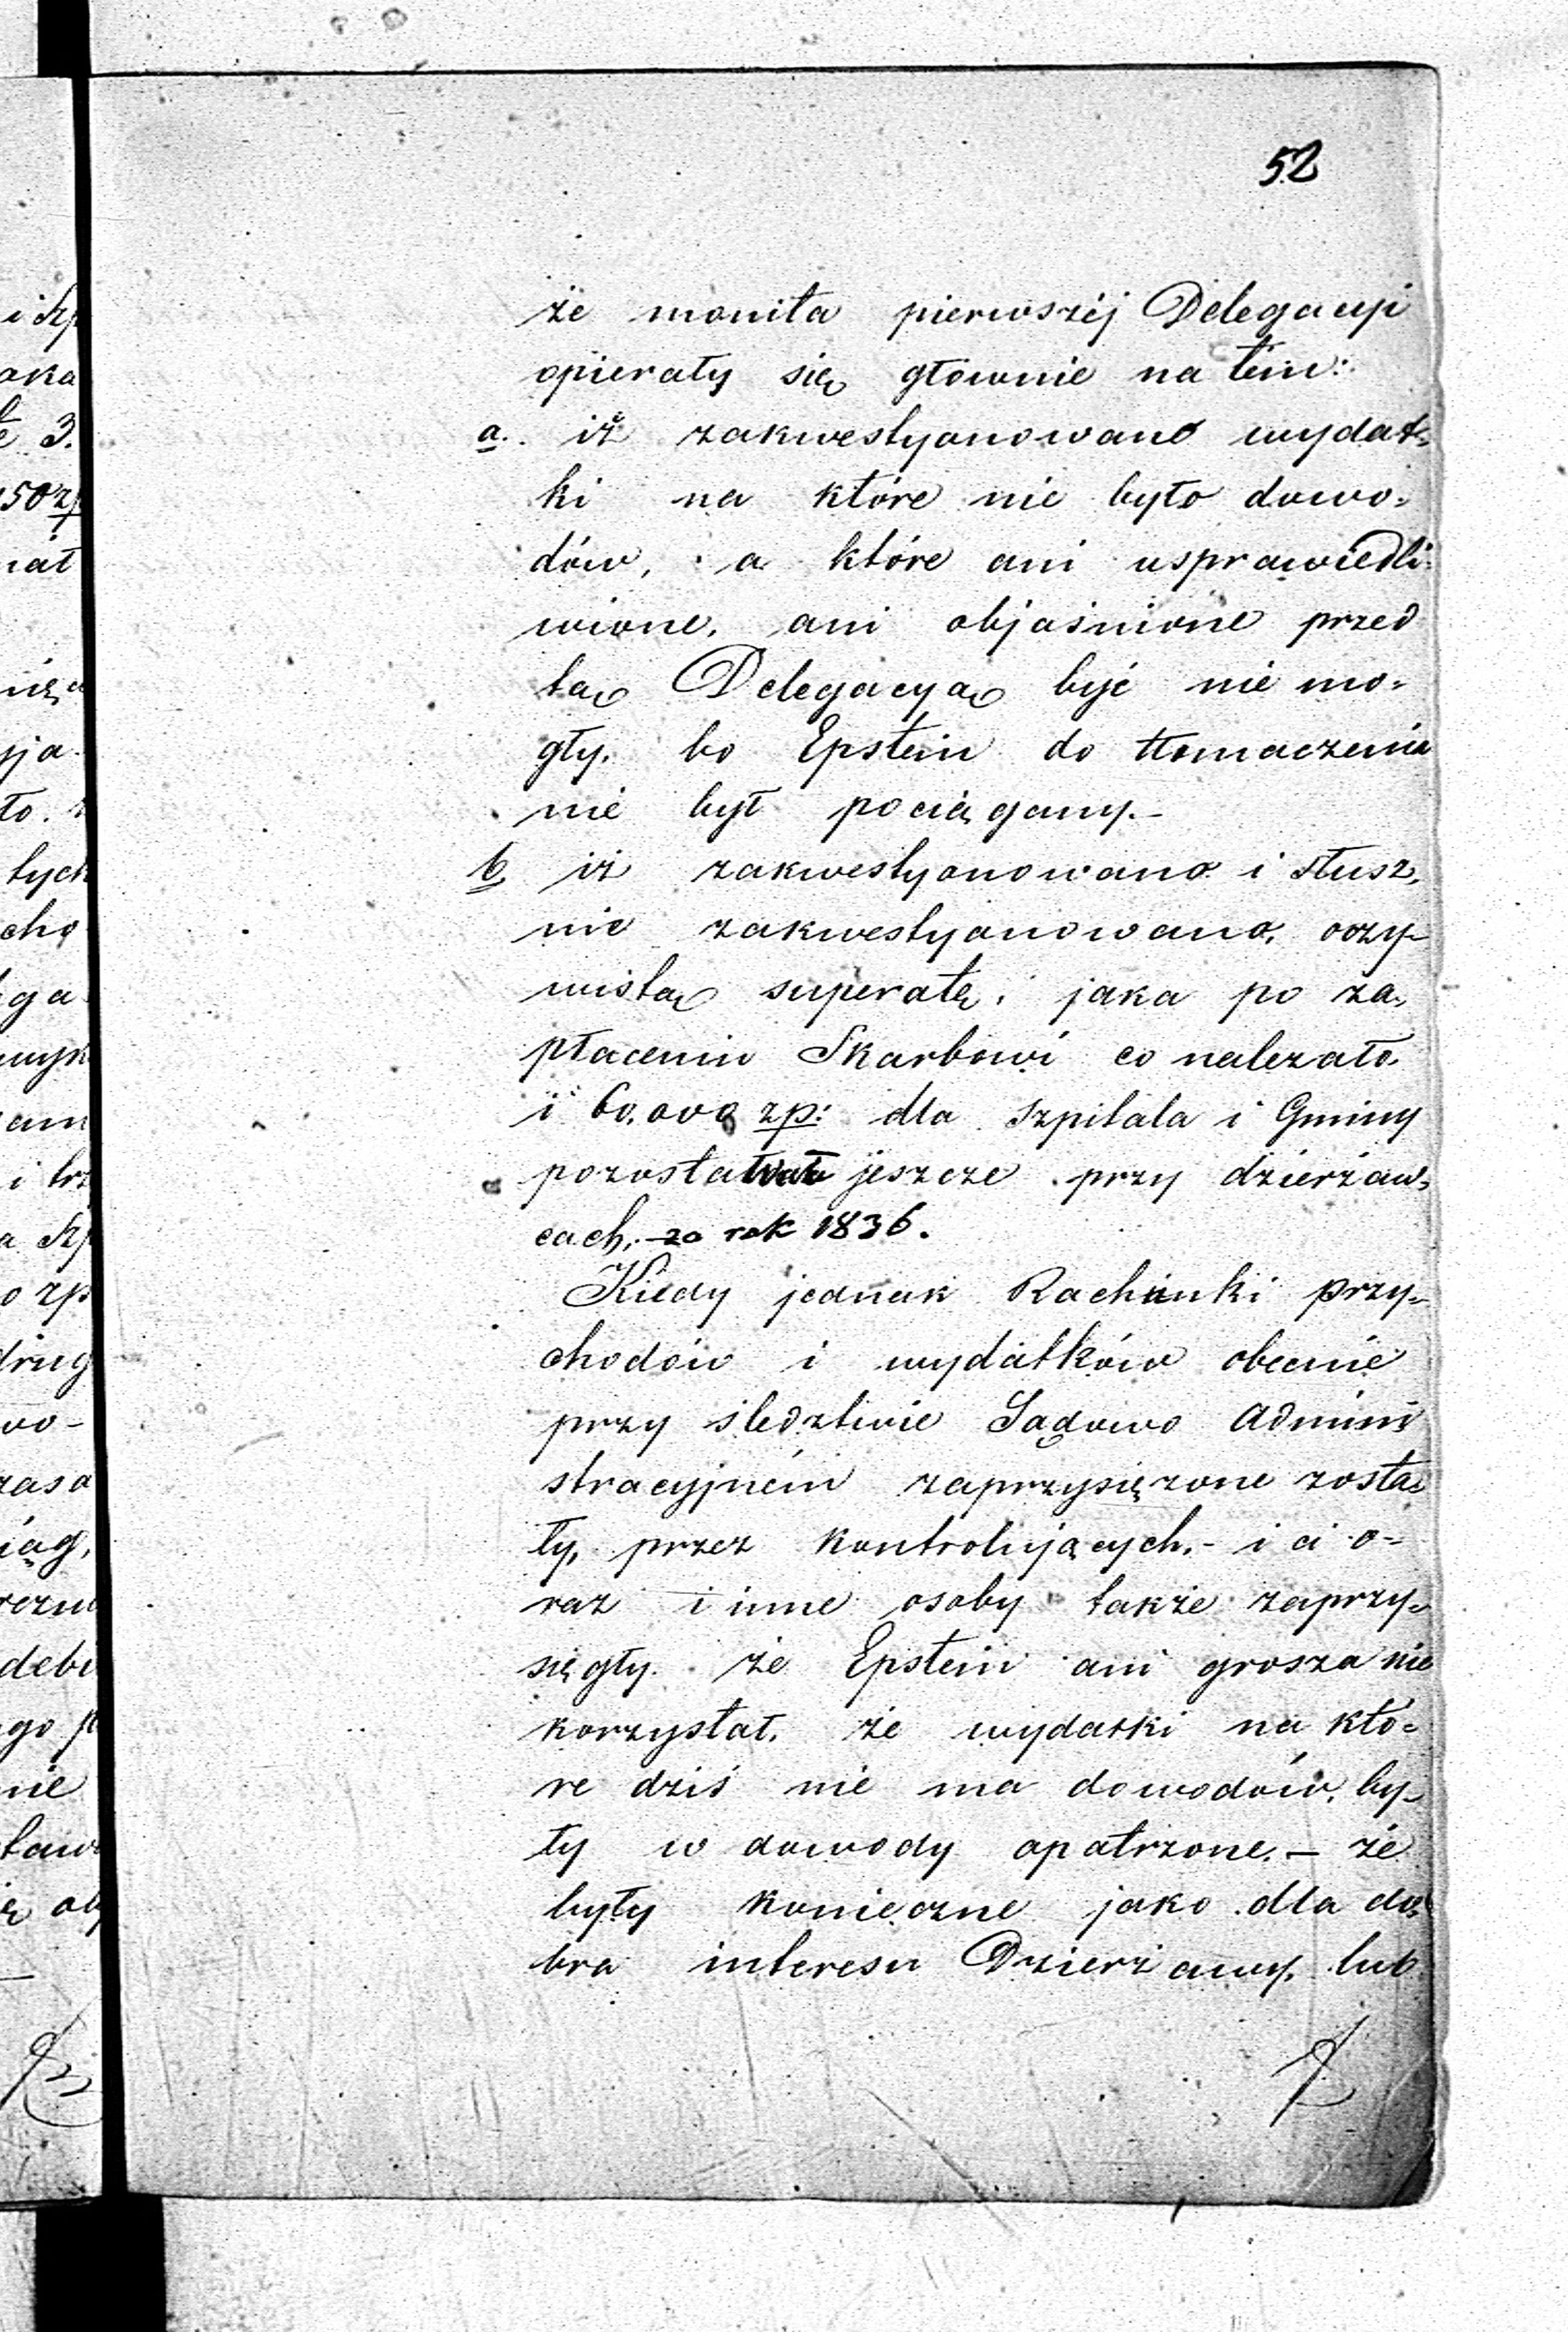 52
że monita pierwszéj Delegacyi
opierały się głownie na tém:
a. iż zakwestyonowano wydat=
ki na które nie było dowo=
dów, a które ani usprawiedli=
wione, ani objaśnione przed
tą Delegacyą być nie mo=
gły, bo Epstein do tłomaczenia
nie był pociągany.—
b, iż zakwestyonowano i słusz=
nie zakwestyonowano, oczy=
wistą superatę, jaka po za=
płaceniu Skarbowi co nalezało
i 60,000 zp: dla Szpitala i Gminy
pozostawała jeszcze przy dzierżaw=
cach, za rok 1836.
Kiedy jednak Rachunki przy=
chodów i wydatków obecnie
przy śledztwie Sądowo Admini
stracyjném zaprzysięzone zosta=
ły, przez kontrolujących,— i ci o=
raz i inne osoby także zaprzy=
sięgły że Epstein ani grosza nie
korzystał, że wydatki na któ=
re dziś nie ma dowodów, by=
ły w dowody opatrzone,— że
były konieczne jako dla do=
bra interesu Dzierżawy, lub